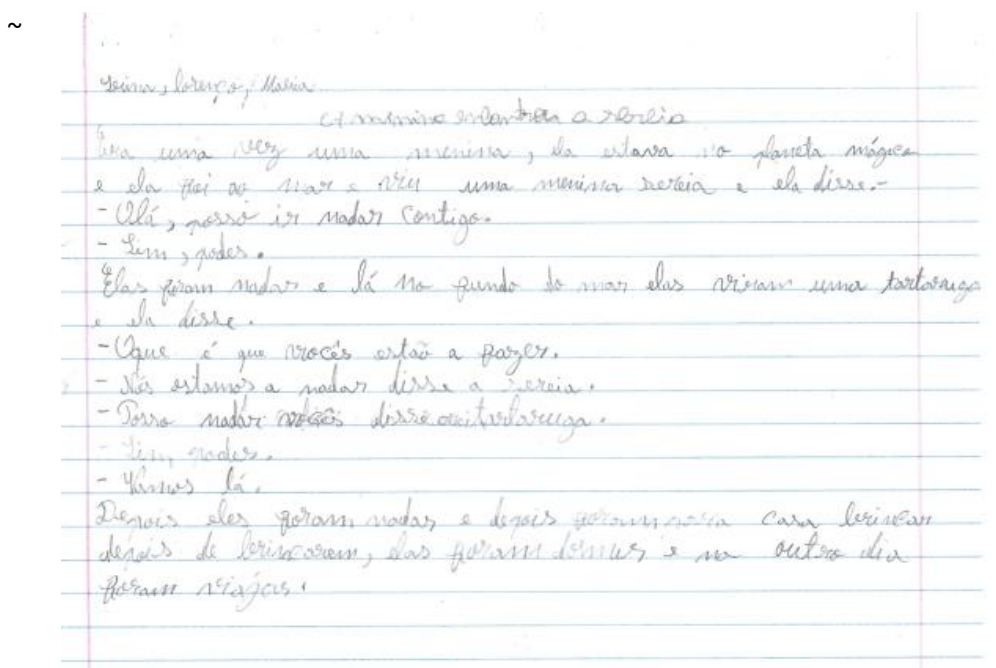 ~
Lorenço, Maria
A menina encontra a sereia
Era uma vez uma menina, ela estava no planeta mágico
e ela foi ao mar e viu uma menina sereia e ela disse.-
- Olá, posso ir nadar contigo.
- Sim, podes.
Elas foram nadar e lá no fundo do mar elas viram uma tartaruga
e ela disse.
- Oque é que vocês estaõ a fazer.
- Nós estamos a nadar disse a sereia.
- Posso nadar vocês disse a tartaruga.
- Sim, podes.
- Vamos lá.
Depois eles foram nadar e depois foram casa brincar
depois de brincarem, elas foram dormir e no outro dia
foram viajar.